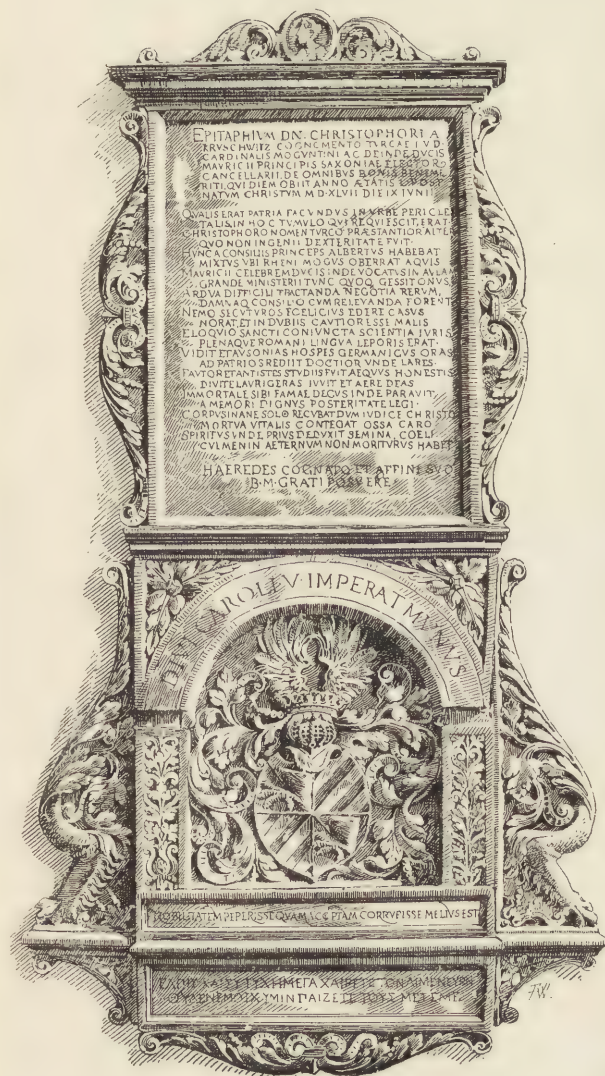 EPITAPHIVM DN. CHRISTOPHORI A
COGNOMENTO TVRCAE I V D
CARDINALIS MOGVNTINI AC DEINDE DVCIS
MAVRICII PRINCIPIS SAXONIAE ELECTOR
CANCELLARII. DE OMNIBVS BONIS BENEME
RITI, QVI DIEM OBIIT ANNO ÆTATIS POST
NATVM CHRISTVM M·D·XLVII DIE IX IVNII
QVALIS ERAT PATRIA FACVNDVS IN VRBE PERICLES
TALIS IN HOC TVMVLO QVI REQVIESCIT, ERAT
CHRISTOPHORO NOMEN TVRCO PRÆSTANTIOR ALTER
QVO NON INGENII DEXTERITATE FVIT.
HVNC A CONSILIIS PRINCEPS ALBERTVS HABEBAT
MIXTVS VBI RHENI MOGVS OBERRAT AQVIS
MAVRICII CELEBREM DVCIS INDE VOCATVS IN AVLAM
GRANDE MINISTERII TVNC QVOQ GESSIT ONVS
ARDVA DIFFICILI TRACTANDA NEGOTIA RERVM
DAMNAQ CONSILIO CVM RELEVANDA FORENT
NEMO SECVTVROS FOELICIVS EDERE CASVS
NORAT, ET IN DVBIIS CAVTIOR ESSE MALIS
ELOQVIO SANCTI CONIVNCTA SCIENTIA IVRIS
PLENAQVE ROMANI LINGVA LEPORIS ERAT.
VIDIT ET AVSONIAS HOSPES GERMANICVS ORAS
AD PATRIOS REDIIT DOCTIOR VNDE LARES.
FAVTOR ET ANTISTES STVDIIS FVIT AEQVVS HONESTIS
DIVITE LAVRIGERAS IVVIT ET AERE DEAS
IMMORTALE SIBI FAMAE DECVS INDE PARAVIT
A MEMORI DIGNVS POSTERITATE LEGI.
CORPVS INANE SOLO RECVBAT DVM IVDICE CHRISTO
MORTVA VITALIS CONTEGAT OSSA CARO
SPIRITVS VNDE PRIVS DEDVXIT SEMINA, COELI
CVLMEN IN AETERNVM NON MORITVRVS HABET
HAEREDES COGNATO ET AFFINI SVO
B·M·GRATI POSVERE
DIVI CAROLI V·IMPERAT MVNVS
NOBILITATEM PEPERISSE QVAM ACCEPTAM CORRVPISSE MELIVS EST